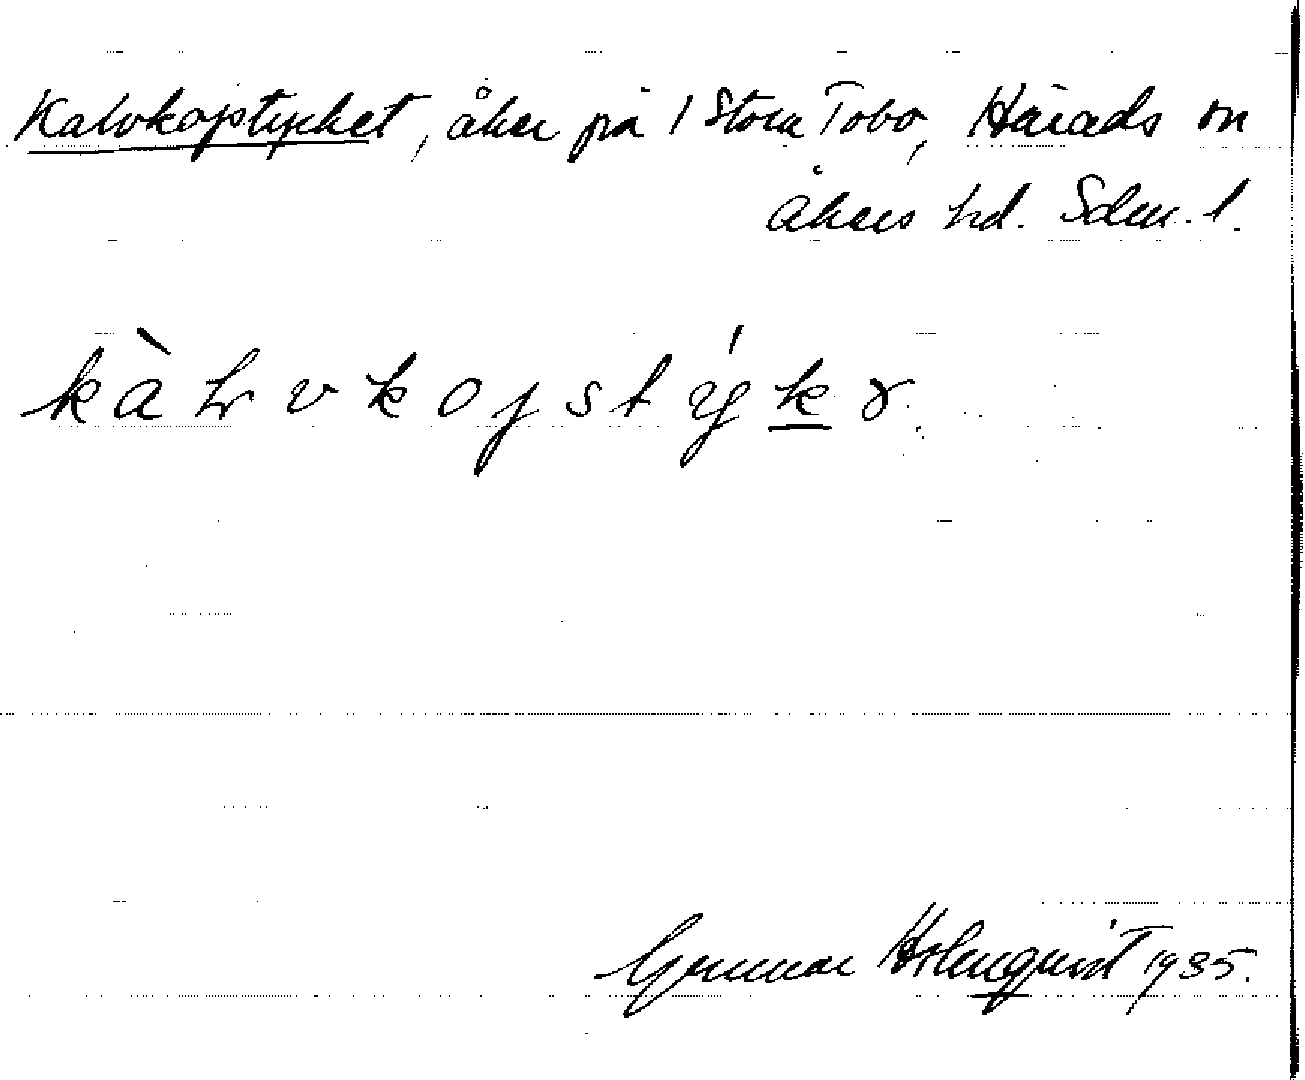 Kalvkojstycket, åker på 1 Stora Tobo, Härads sn
Åkers hd. Sdm. l.
kàlvkojstýkǝ.
Gunnar Holmqvist 1935.